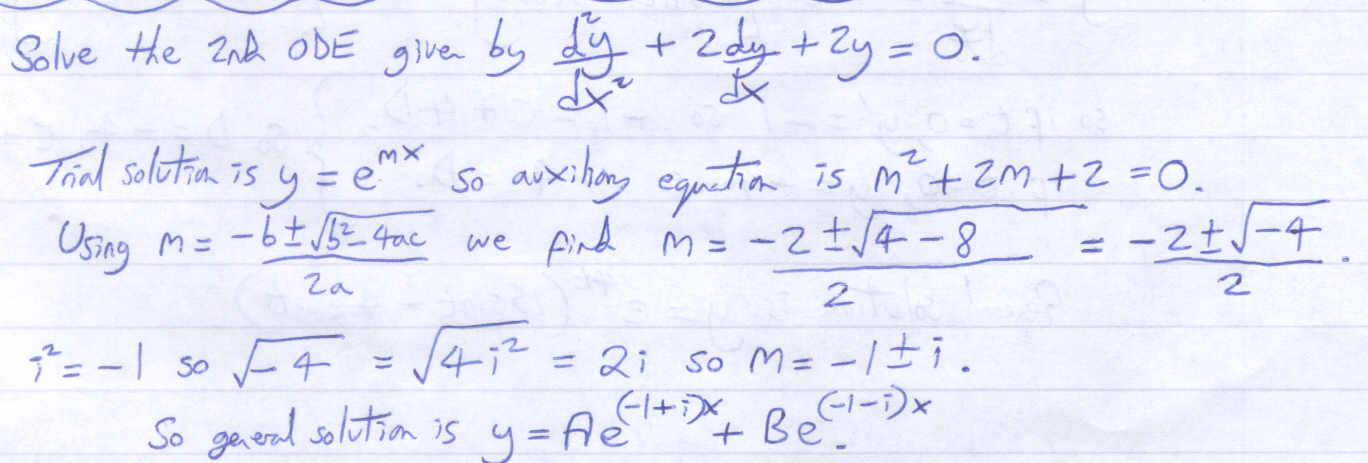 Solve the 2nd ODE given by d²y/dx² + 2dy/dx + 2y = 0.
Trial solution is y = e^(mx) so auxiliary equation is m² + 2m + 2 = 0.
Using m = (-b ± √(b² - 4ac))/2a we find m = (-2 ± √(4 - 8))/2 = (-2 ± √-4)/2.
i² = -1 so √-4 = √(4i²) = 2i so m = -1 ± i.
So general solution is y = Ae^((-1+i)x) + Be^((-1-i)x).